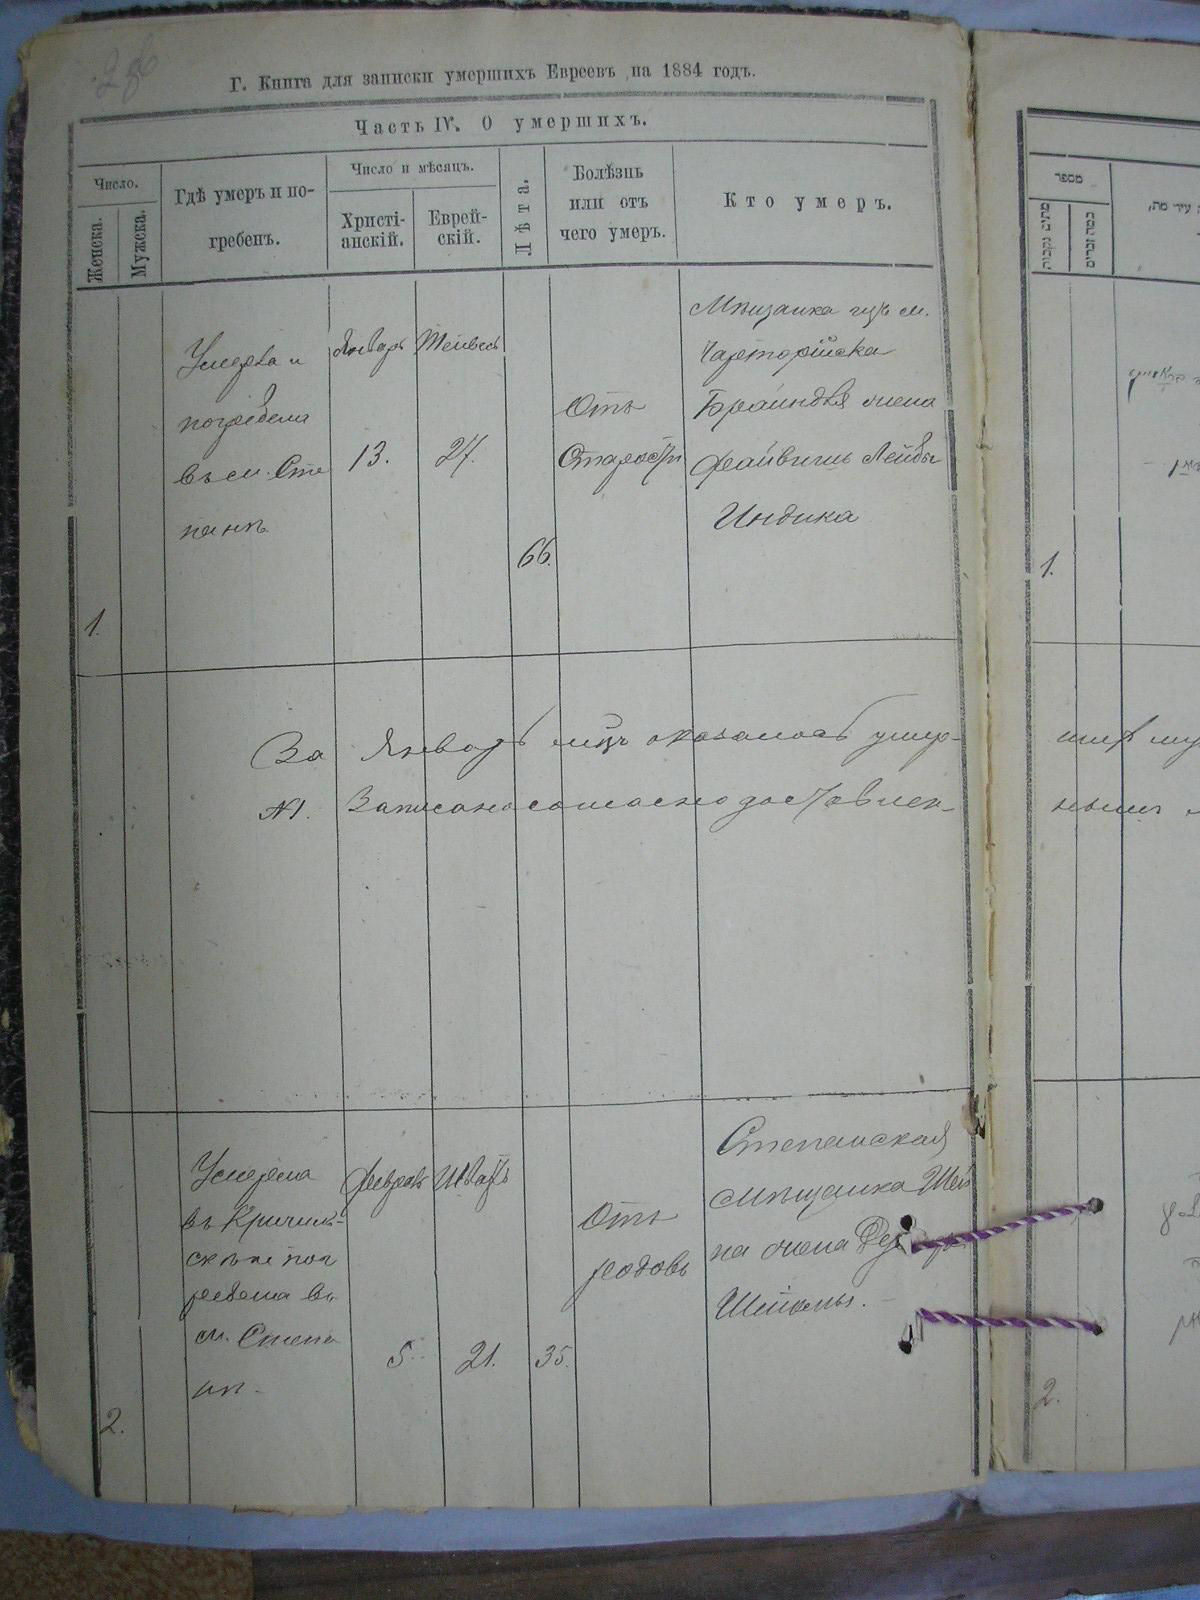 Г. Книга для записки умершихъ Евреевъ на 1884 годъ.
Часть IV. О умершихъ.
Число.
Женска.
Мужска.
Гдѣ умеръ и по-
гребенъ.
Число и мѣсяцъ.
Христі-
анскій.
Еврей-
скій.
Лѣта.
Болѣзнь
или отъ
чего умеръ.
Кто умеръ.
מספר
1.
Умерла и
погребена
въ м. Сте
панѣ
Январь
13.
Тейвесъ
27.
66.
Отъ
Старости
Мѣщанка изъ м.
Чарторійска
Брайндля жена
Файвишъ Лейбы
Индика
1.
За Январь мцъ оказалось умер-
№1. Записано согласно доставлен-
нымъ
2.
Умерла
въ Кричиль-
скѣ и пог
ребена въ
м. Степа
нѣ
Февраль
5
Шватъ
21.
35.
Отъ
родовъ
Степанская
мѣщанка Шей
на жена
2.